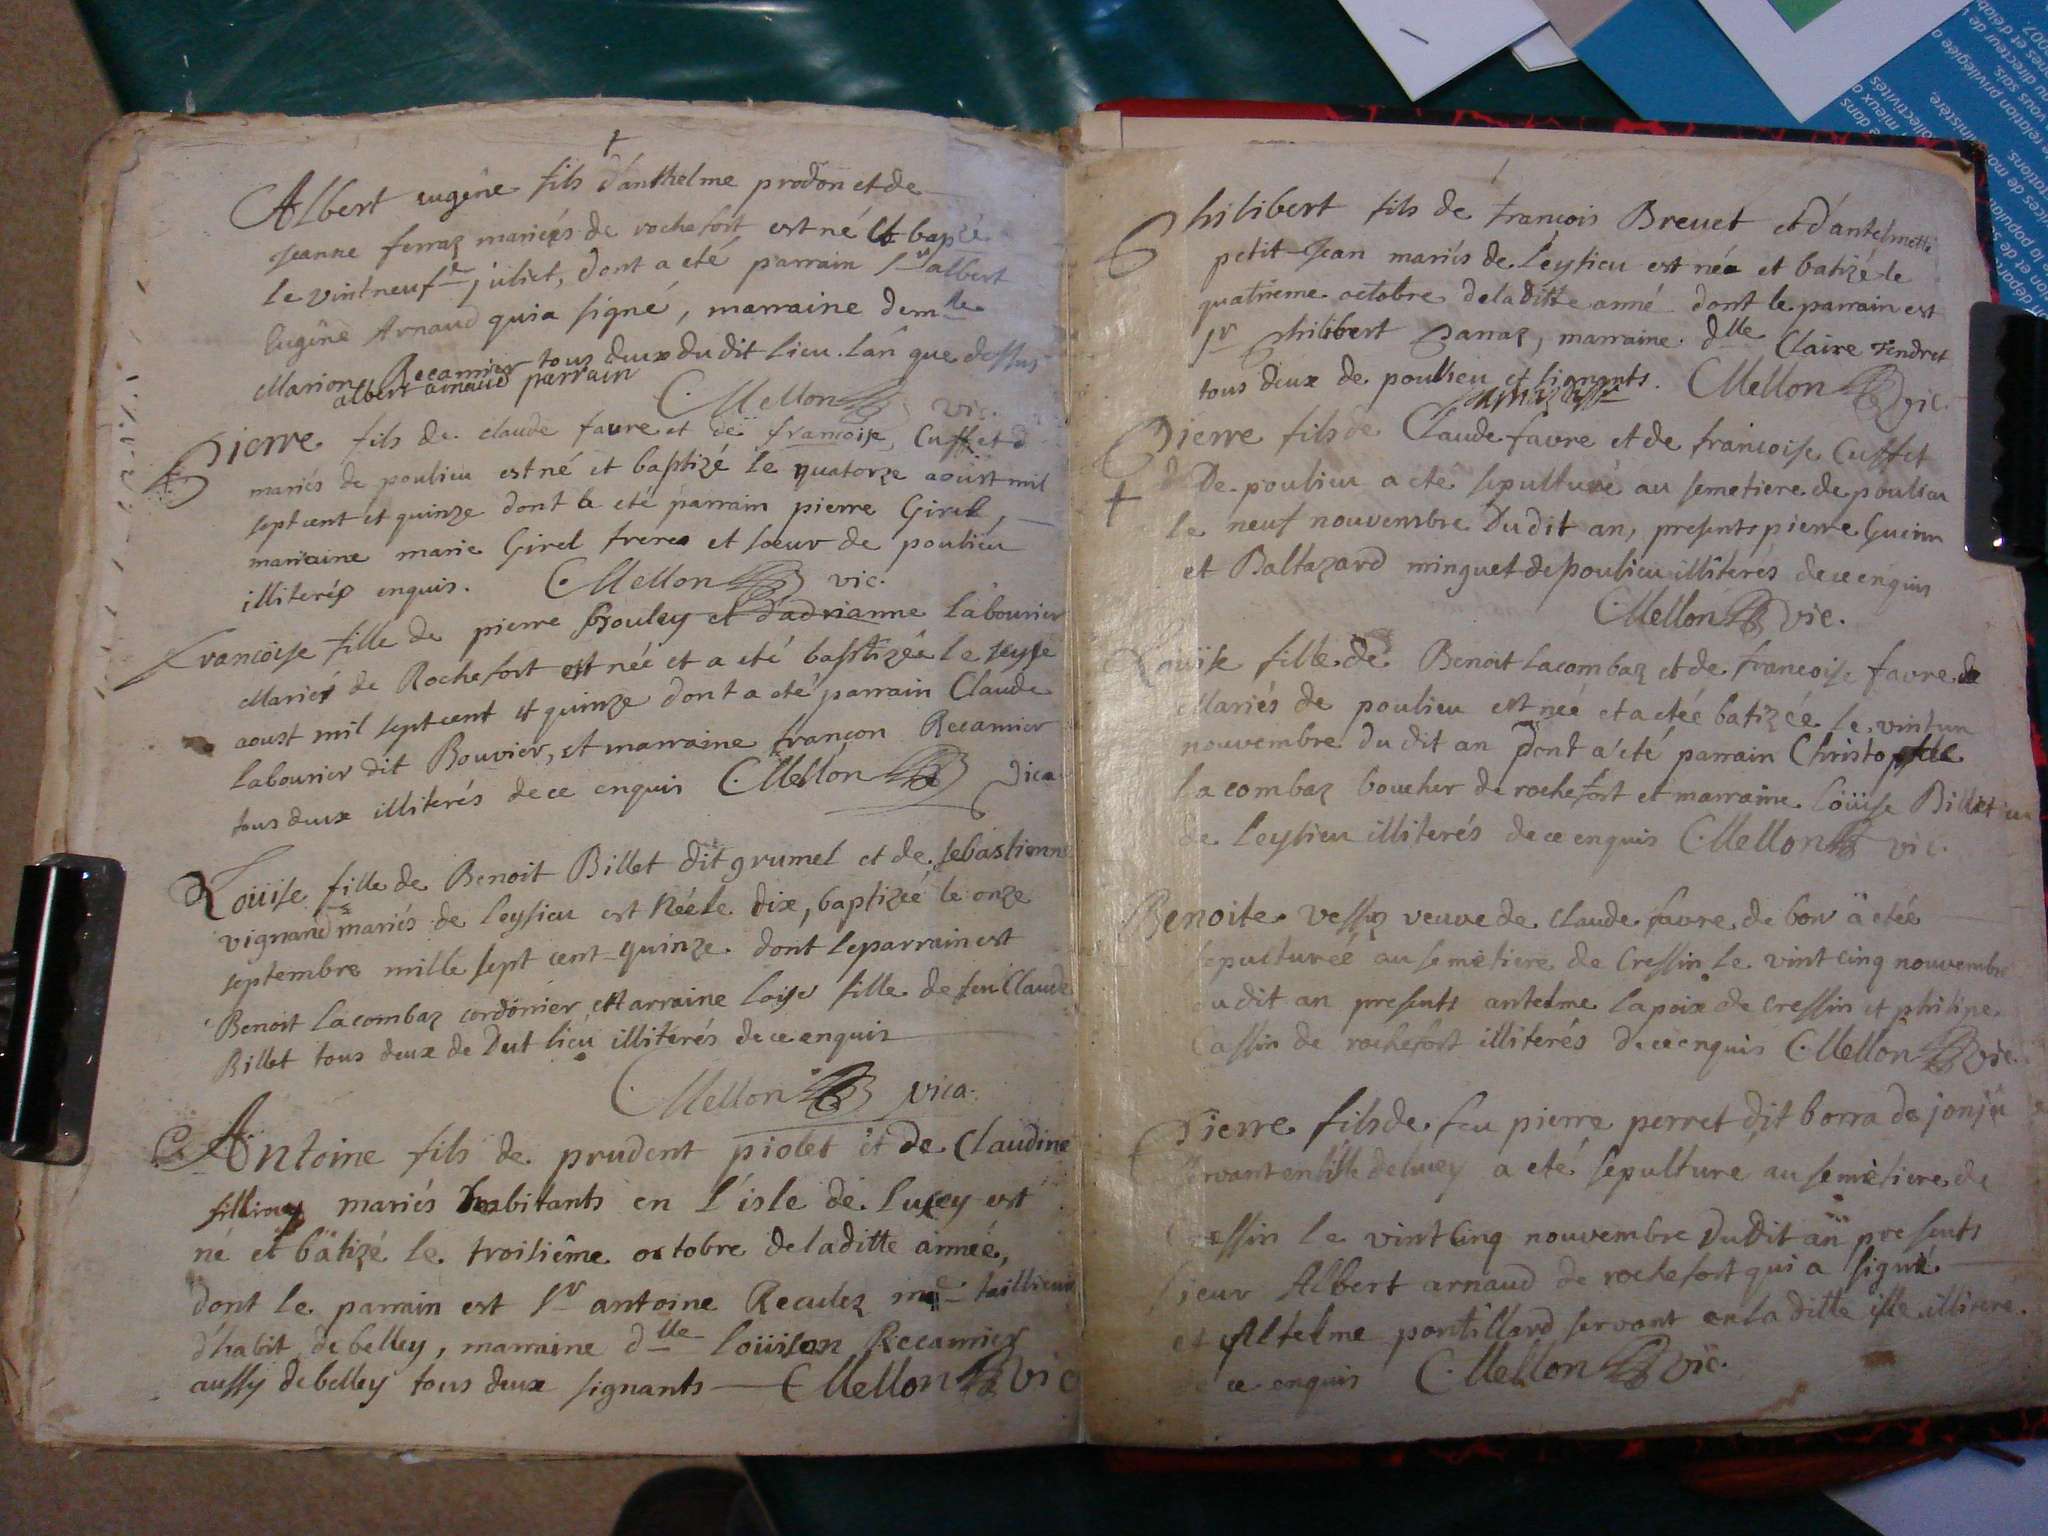 Albert eugêne fils d'anthelme prodon et de
jeanne ferraz mariés de rochefort est né et bapzé
le vint neufe juliet, dont a eté parrain sr albert
Eugêne Arnaud qui a signé, marraine demlle
Marion Recamier tous deux du dit lieu. l'an que dessus
albert arnaud parrain
C Mellon vic.
Pierre fils de claude favre et de francoise Cuffet d
mariés de poulieu est né et baptizé le quatorze aoust mil
sept cent et quinze dont a eté parrain pierre Girel,
marraine marie Girel frere et sœur de poulieu
illiterés enquis. C Mellon vic.
francoise fille de pierre Gouley et d'adrianne labourier
Mariés de Rochefort est née et a eté baptizée le seyze
aoust mil sept cent et quinze dont a eté parrain Claude
labourier dit Bouvier, et marraine françon Recamier
tous deux illiterés de ce enquis C Mellon vica
Loüise fille de Benoit Billet dit grumel et de sebastienne
vignand mariés de leysieu est née le dix, baptizeé le onze
septembre mille sept cent quinze dont le parrain est
Benoit lacombaz cordonier, Marraine loise fille de feu Claude
Billet tous deux de Dut lieu illiterés de ce enquis
C Mellon vica.
Antoine fils de prudent piolet et de Claudine
mariés habitants en l'isle de lucey est
né et bätizé le troisiême octobre de la ditte année,
dont le parrain est sr antoine Reculez me taillieur
d'habit de belley, marraine dlle loüison Recamier
aussy de belley tous deux signants C Mellon vic
Philibert fils de francois Brevet et d'antelmette
petit Jean mariés de leysieu est née et batizé le
quatrieme octobre de la ditte anné dont le parrain est
sr philibert Panaz, marraine dlle Claire Tendret
tous deux de poulieu et signants. C Mellon vic.
Pierre fils de Claude favre et de francoise Cuffet
De poulieu a eté sepulturé au semetiere de poulieu
le neuf nouvembre Du dit an, presents pierre Guerin
et Baltazard minguet de poulieu illiterés de ce enquis
C Mellon vic.
Loüise fille de Benoit lacombaz et de francoise favre de
Mariés de poulieu est née et a eteé batizée le vint un
nouvembre Du dit an Dont a eté parrain Christophle
la combaz boucher de rochefort et marraine loüise Billet
de leysieu illiterés de ce enquis C Mellon vic.
Benoite vessiz veuve de claude favre de bon a etée
sepulturée au semetiere de Cressin le vint cinq nouvembre
du dit an presents antelme lapoix de cressin et philipe
Cassin de rochefort illiterés de ce enquis C Mellon vic.
Pierre fils de feu pierre perret dit borra de jonju
servant en l'isle de lucey a eté sepulture au semetiere de
Cressin le vint cinq nouvembre Du dit an presents
sieur Albert arnaud de rochefort qui a signé
et Altelme pontillard servant en la ditte isle illiteré
de ce enquis C Mellon vic.